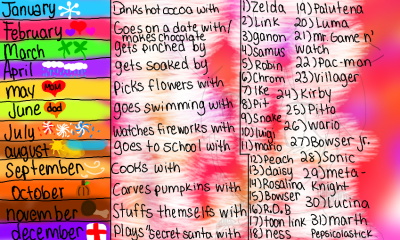 January
February
March
April
may
mom
June dad
July
august
September
October
november
december
Drinks hot cocoa with
Goes on a date with/
makes chocolate
gets pinched by
gets soaked by
Picks flowers with
goes swimming with
watches fireworks with
goes to school with
Cooks with
Carves pumpkins with
Stuffs themself with
Plays secret santa with
1)Zelda
2)Link
3)ganon
4)Samus
5)Robin
6)Chrom
7)Ike
8)Pit
9)Snake
10)luigi
11)mario
12)Peach
13)daisy
14)Rosalina
15)Bowser
16)R.O.B
17)toon link
18)ness
19)Palutena
20)Luma
21)mr. Game n'
watch
22)Pac-man
23)Villager
24)Kirby
25)Pitto
26)wario
27)Bowser jr.
28)Sonic
29)meta-
Knight
30)Lucina
31)marth
Pepsicolastick